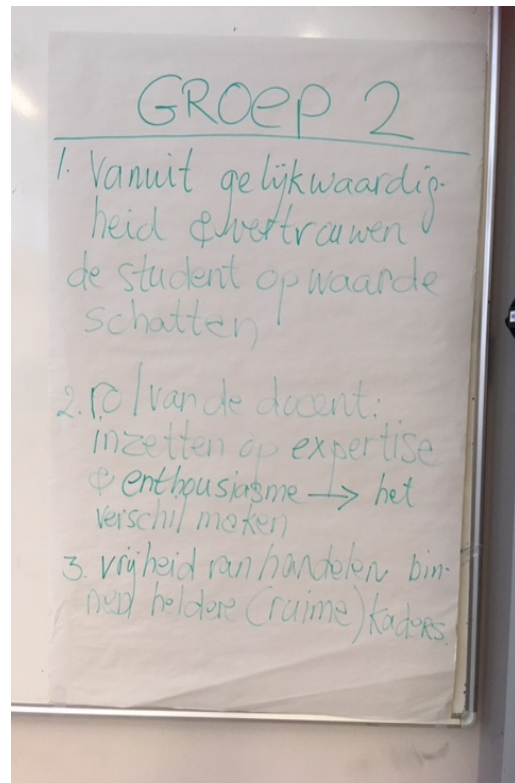 GROEP 2
1. Vanuit gelijkwaardig-
heid & vertrouwen
de student op waarde
schatten
2. rol van de docent:
inzetten op expertise
& enthousiasme → het
verschil maken
3. vrijheid van handelen bin-
nen heldere (ruime) kaders.